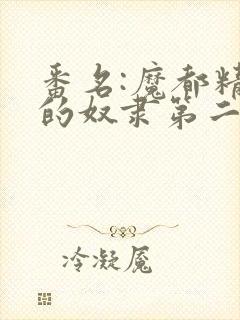 番名:魔都精
的奴隶第二
冷凝魇